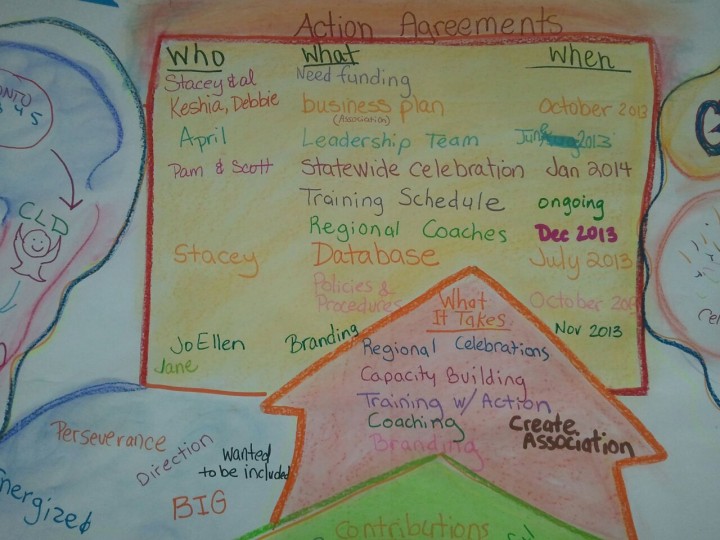 Action Agreements
Who What When
Stacey & al Need funding
Keshia, Debbie business plan October 2013
(Association)
April Leadership Team June 2013
Pam & Scott Statewide Celebration Jan 2014
Training Schedule ongoing
Regional Coaches Dec 2013
Stacey Database July 2013
Policies & Procedures October
JoEllen Branding Nov 2013
Jane
What
It Takes
Regional Celebrations
Capacity Building
Training w/ Action
Coaching
Branding
Create
Association
4 5
CLD
Perseverance
Direction
Wanted
to be included
Energized
BIG
Contributions